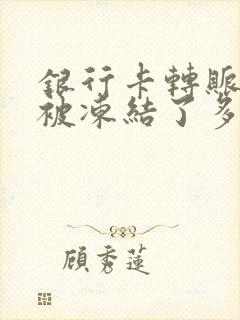 銀行卡轉賬
被凍結了多
顧秀蓮